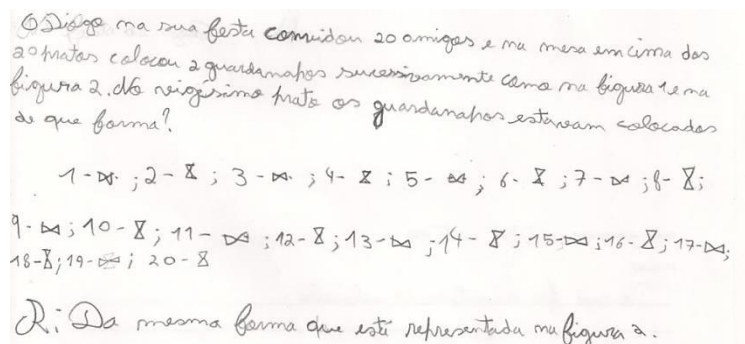 O Diogo na sua festa convidou 20 amigos e na mesa em cima dos
20 pratos colocou 2 guardanapos sucessivamente como na figura 1 e na
figura 2. No vigéssimo prato os guardanapos estavam colocados
de que forma?
1-⋈; 2-⧖; 3-⋈; 4-⧖; 5-⋈; 6-⧖; 7-⋈; 8-⧖;
9-⋈; 10-⧖; 11-⋈; 12-⧖; 13-⋈; 14-⧖; 15-⋈; 16-⧖; 17-⋈;
18-⧖; 19-⋈; 20-⧖
R: Da mesma forma que está representada na figura 2.